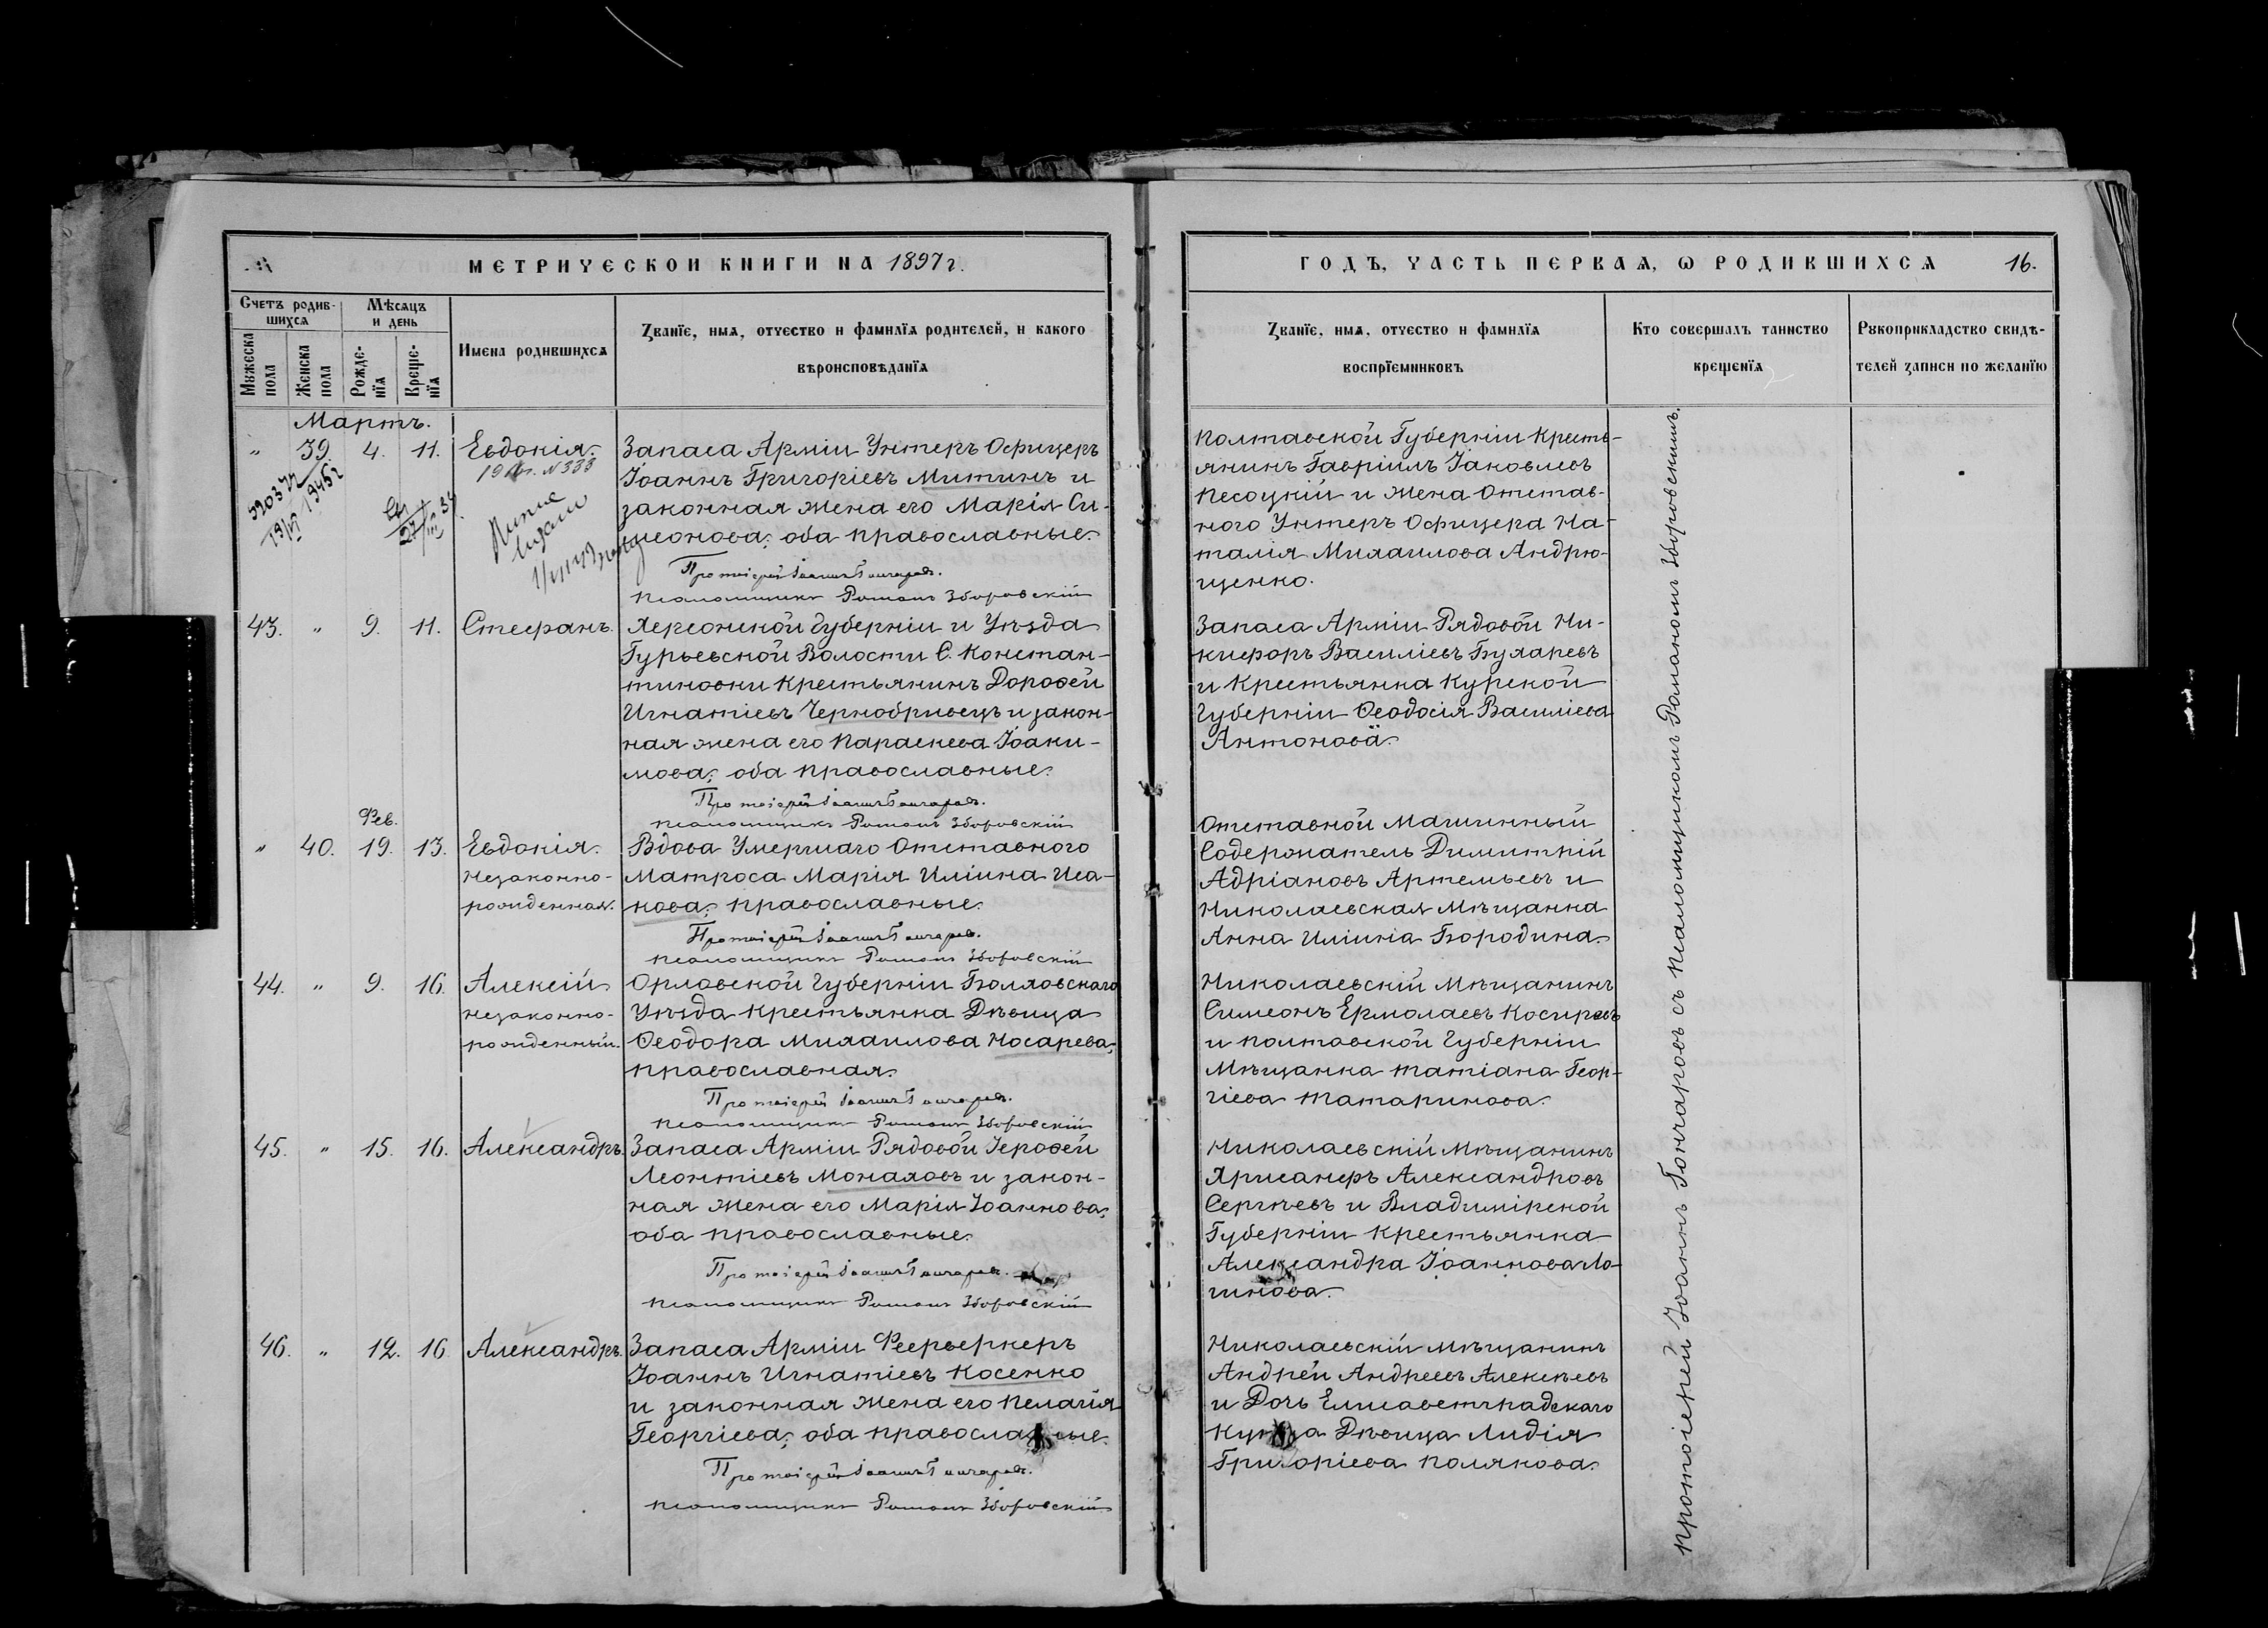 МЕТРИЧЕСКОЙ КНИГИ НА 1897 г.
Счетъ родив-
шихся
Мѣсяцъ
и день
Мужеска
пола
Женска
пола
Рожде-
нїя
Креще-
нїя
Имена родившихся
Званїе, имя, отчество и фамилїя родителей, и какого
вѣроисповѣданїя
Мартъ.
" 39. 4. 11. Евдокія.
Запаса Арміи Унтеръ Офицеръ
Іоаннъ Григоріевъ Митинъ и
законная жена его Марія Си-
меонова; оба православные.
Протоіерей Іоаннъ Гончаровъ.
Псаломщикъ Романъ Зборовскій
43. " 9. 11. Стефанъ.
Херсонской Губерніи и Уѣзда
Гурьевской Волости С. Констан-
тиновки крестьянинъ Дорофей
Игнатіевъ Чернобривецъ и закон-
ная жена его Параскева Іоаки-
мова; оба православные.
Протоіерей Іоаннъ Гончаровъ.
Псаломщикъ Романъ Зборовскій
Фев.
" 40. 19. 13. Евдокія.
незаконно-
рожденная.
Вдова Умершаго Отставного
Матроса Марія Иліина Иса-
кова; православные.
Протоіерей Іоаннъ Гончаровъ.
Псаломщикъ Романъ Зборовскій
44. " 9. 16. Алексій
незаконно-
рожденный.
Орловской Губерніи Болховскаго
Уѣзда крестьянка Дѣвица
Ѳеодора Михаилова Носарева;
православная.
Протоіерей Іоаннъ Гончаровъ.
Псаломщикъ Романъ Зборовскій
45. " 15. 16. Александръ.
Запаса Арміи Рядовой Іерофей
Леонтіевъ Монаховъ и закон-
ная жена его Марія Іоаннова;
оба православные.
Протоіерей Іоаннъ Гончаровъ.
Псаломщикъ Романъ Зборовскій
46. " 12. 16. Александръ.
Запаса Арміи Феерверкеръ
Іоаннъ Игнатіевъ Косенко
и законная жена его Пелагія
Георгіева; оба православные.
Протоіерей Іоаннъ Гончаровъ.
Псаломщикъ Романъ Зборовскій
ГОДЪ, ЧАСТЬ ПЕРВАЯ, Ѡ РОДИВШИХСЯ 16.
Званїе, имя, отчество и фамилїя
воспрїемниковъ
Кто совершалъ таинство
крещенїя
Рукоприкладство свидѣ-
телей записи по желанїю
Полтавской Губерніи Кресть-
янинъ Гавріилъ Іаковлевъ
Песоцкій и жена Отстав-
ного Унтеръ Офицера На-
талія Михаилова Андрю-
щенко.
Запаса Арміи Рядовой Ни-
кифоръ Василіевъ Бухаревъ
и Крестьянка Курской
Губерніи Ѳеодосія Василіева
Антонова.
Отставной Машинный
Содержатель Димитрій
Адріановъ Артемьевъ и
Николаевская Мѣщанка
Анна Иліина Бородина.
Николаевскій Мѣщанинъ
Симеонъ Ермолаевъ Косыревъ
и Полтавской Губерніи
Мѣщанка Татіана Геор-
гіева Татаринова.
Николаевскій Мѣщанинъ
Хрисанѳъ Александровъ
Сергѣевъ и Владимірской
Губерніи Крестьянка
Александра Іоаннова Ло-
гинова.
Николаевскій Мѣщанинъ
Андрей Андреевъ Алексѣевъ
и Дочь Елисаветградскаго
Купца Дѣвица Лидія
Григоріева Полякова.
Протоіерей Іоаннъ Гончаровъ съ псаломщикомъ Романомъ Зборовскимъ.